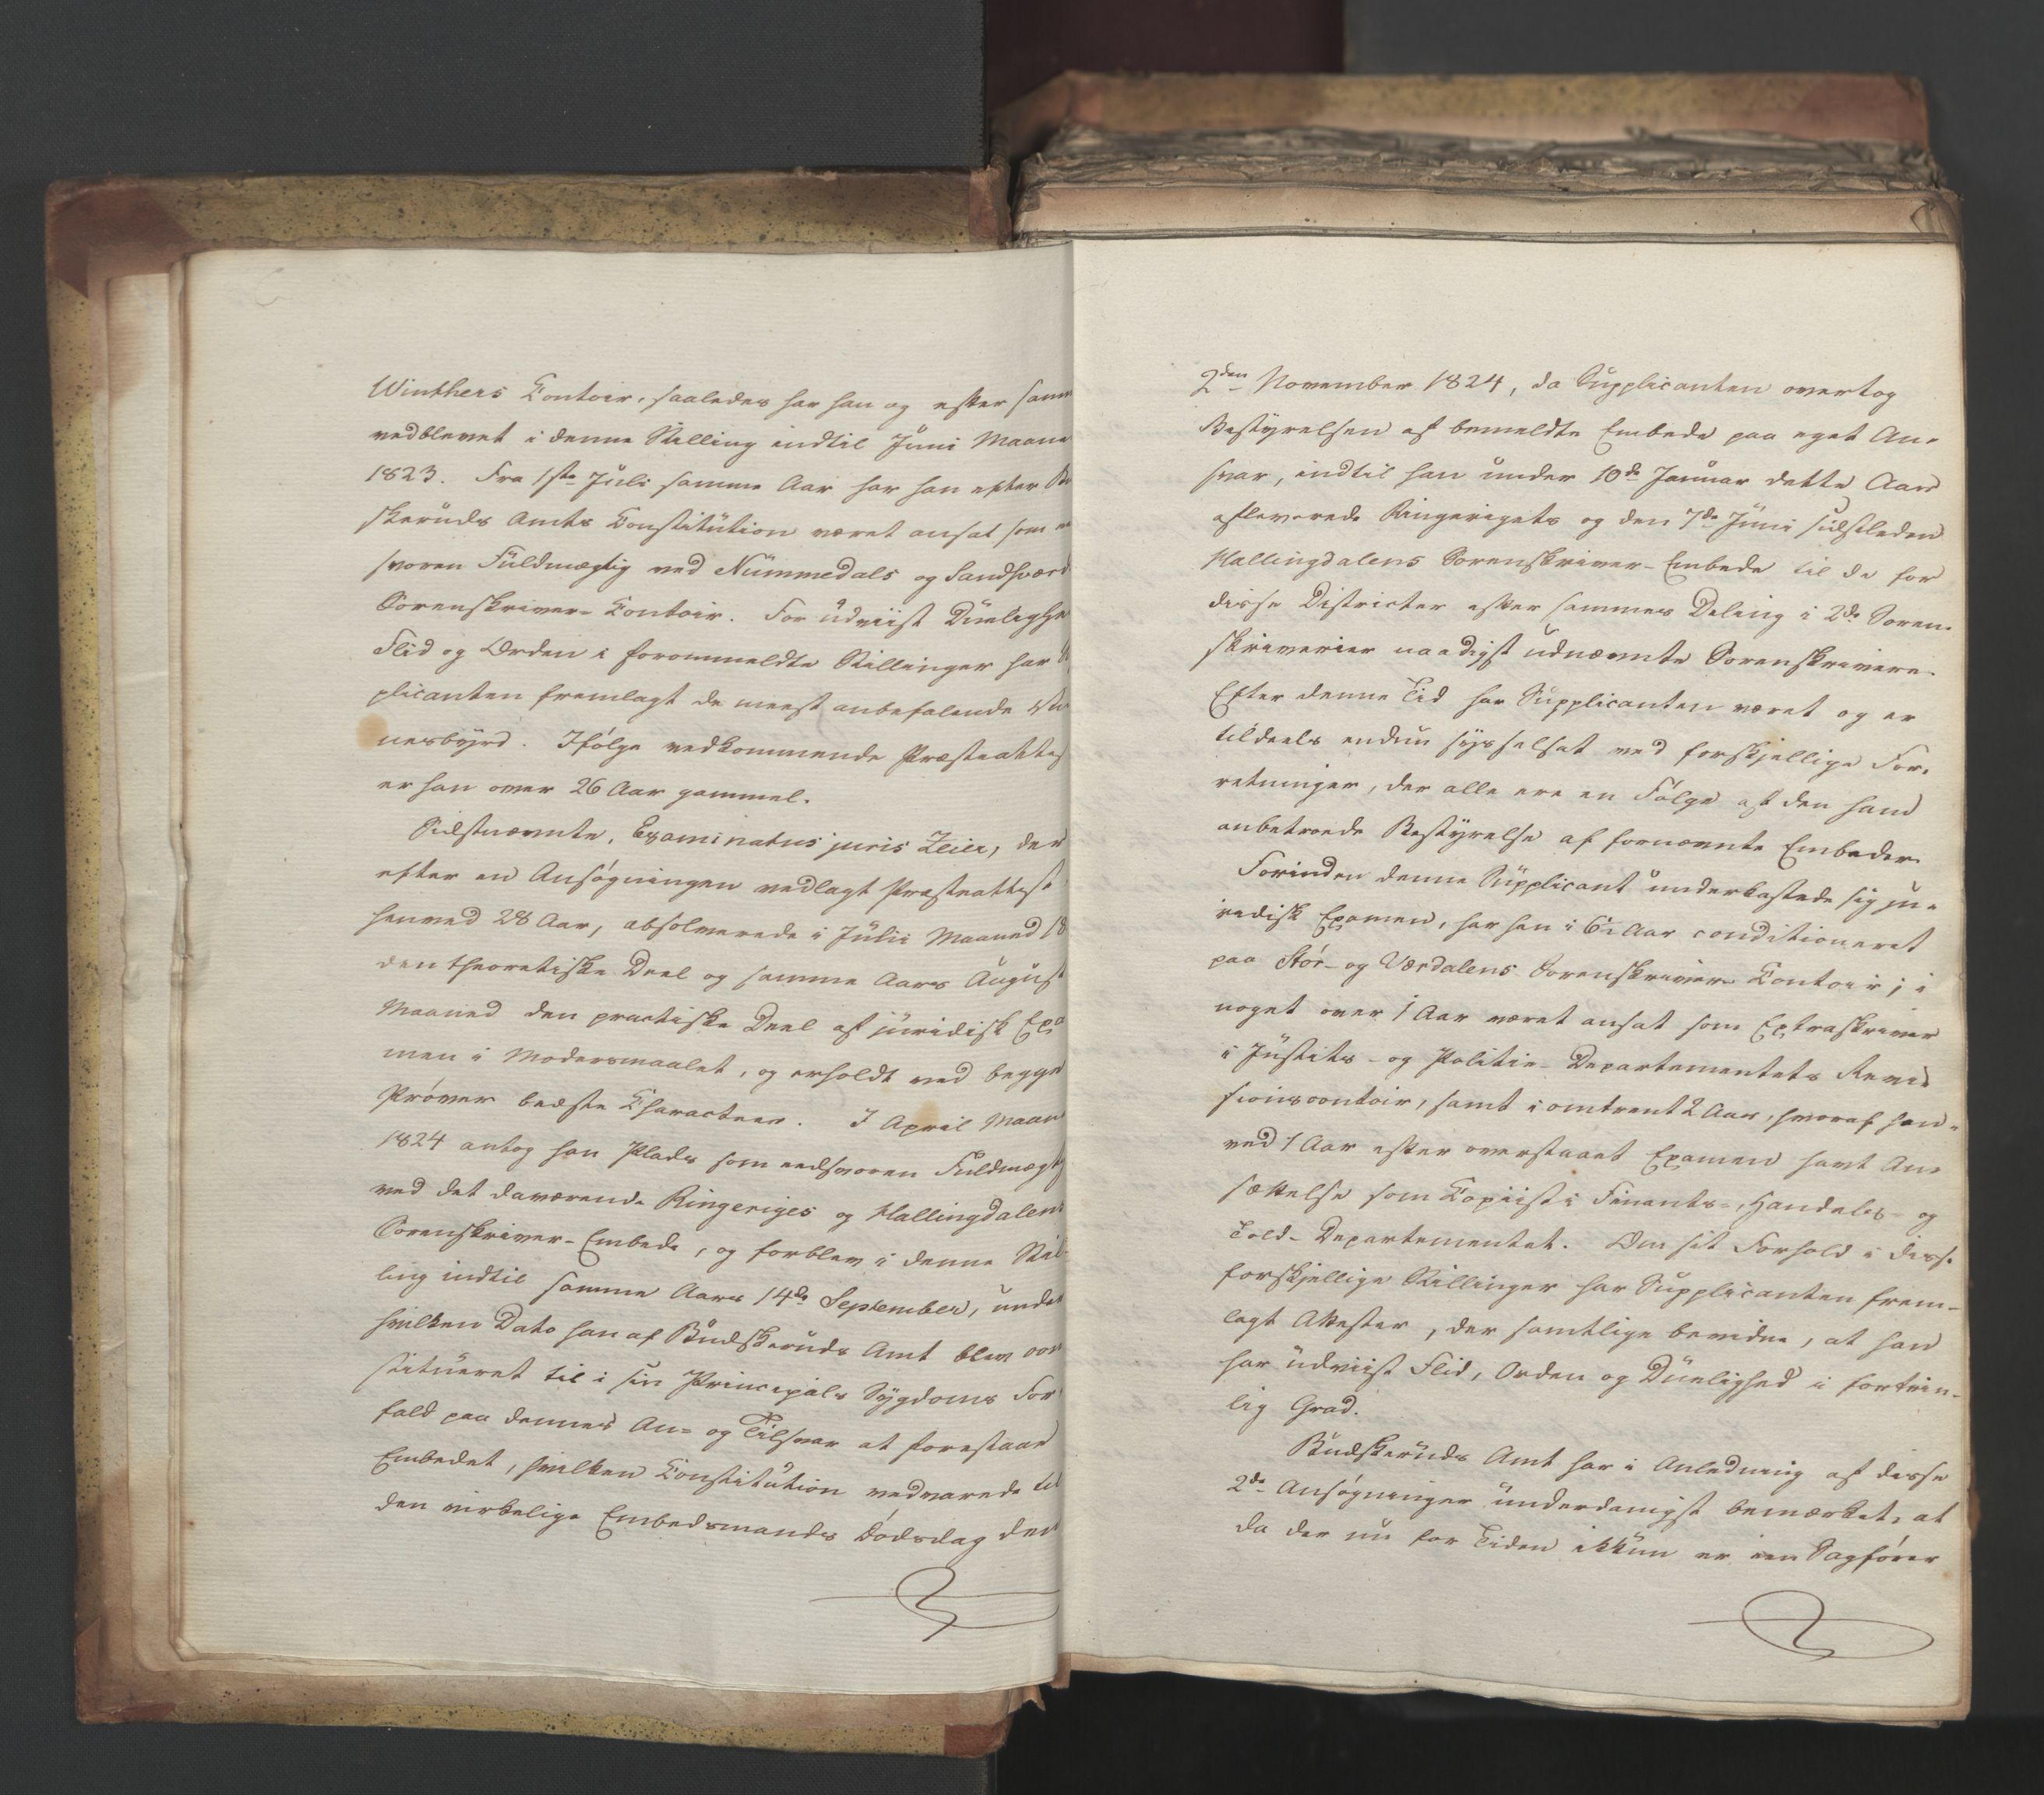 Winthers Contoir, saaledes har han og efter samm
vedblevet i denne Stilling indtil Juni Maane
1823. Fra 1ste Juli samme Aar har han efter Bu
skeruds Amts Constitution været ansat som e
svoren Fuldmægtig ved Nummedals og Sandsværd
Sorenskriver-Contoir. For udviist Duelighe
Flid og Orden i forommeldte Stillinger har
plicanten fremlagt de meest anbefalende Vid
nesbyrd. Ifølge vedkommende Præsteattest
er han over 26 Aar gammel.
Sidstnævnte, Examinatus juris Zeier, der
efter en Ansøgningen vedlagt Præsteattest
henved 28 Aar, absolverede i Julii Maaned 18
den theoretiske Deel og samme Aars August
Maaned den practiske Deel af juridisk Exa
men i Modersmaalet, og erholdt ved begge
Prøver bedste Characteer. I April Maan
1824 antog han Plads som eedsvoren Fuldmægtig
ved det daværende Ringeriges og Hallingdalens
Sorenskriver-Embede, og forblev i denne Stil
ling indtil samme Aars 14de September, under
hvilken Dato han af Budskeruds Amt blev con
stitueret til i sin Principals Sygdoms For
fald paa dennes An- og Tilsvar at forestaae
Embedet, hvilken Constitution vedvarede til
den virkelige Embedsmands Dødsdag den
2den November 1824, da Supplicanten overtog
Bestyrelsen af bemeldte Embede paa eget An-
svar, indtil han under 10de Januar dette Aar
afleverede Ringerigets og den 7de Juni sidstleden
Hallingdalens Sorenskriver-Embede til de for
disse Districter efter sammes Deling i 2de Soren-
skriverier naadigst udnævnte Sorenskrivere.
Efter denne Tid har Supplicanten været og er
tildeels endnu sysselsat ved forskjellige For-
retninger, der alle ere en Følge af den ham
anbetroede Bestyrelse af fornævnte Embeder.
Forinden denne Supplicant underkastede sig ju-
ridisk Examen, har han i 6½ Aar conditioneret
paa Stør- og Værdalens Sorenskriver-Contoir; i
noget over 1 Aar været ansat som Extraskriver
i Justits- og Politie-Departementets Revi-
sionscontoir, samt i omtrent 2 Aar, hvoraf hen-
ved 1 Aar efter overstaaet Examen havt An-
sættelse som Copiist i Finants-, Handels- og
Told-Departementet. Om sit Forhold i disse
forskjellige Stillinger har Supplicanten frem-
lagt Attester, der samtlige bevidne, at han
har udviist Flid, Orden og Duelighed i fortrin-
lig Grad.
Budskeruds Amt har i Anledning af disse
2de Ansøgninger underdanigst bemærket, at
da der nu for Tiden ikkun er een Sagfører